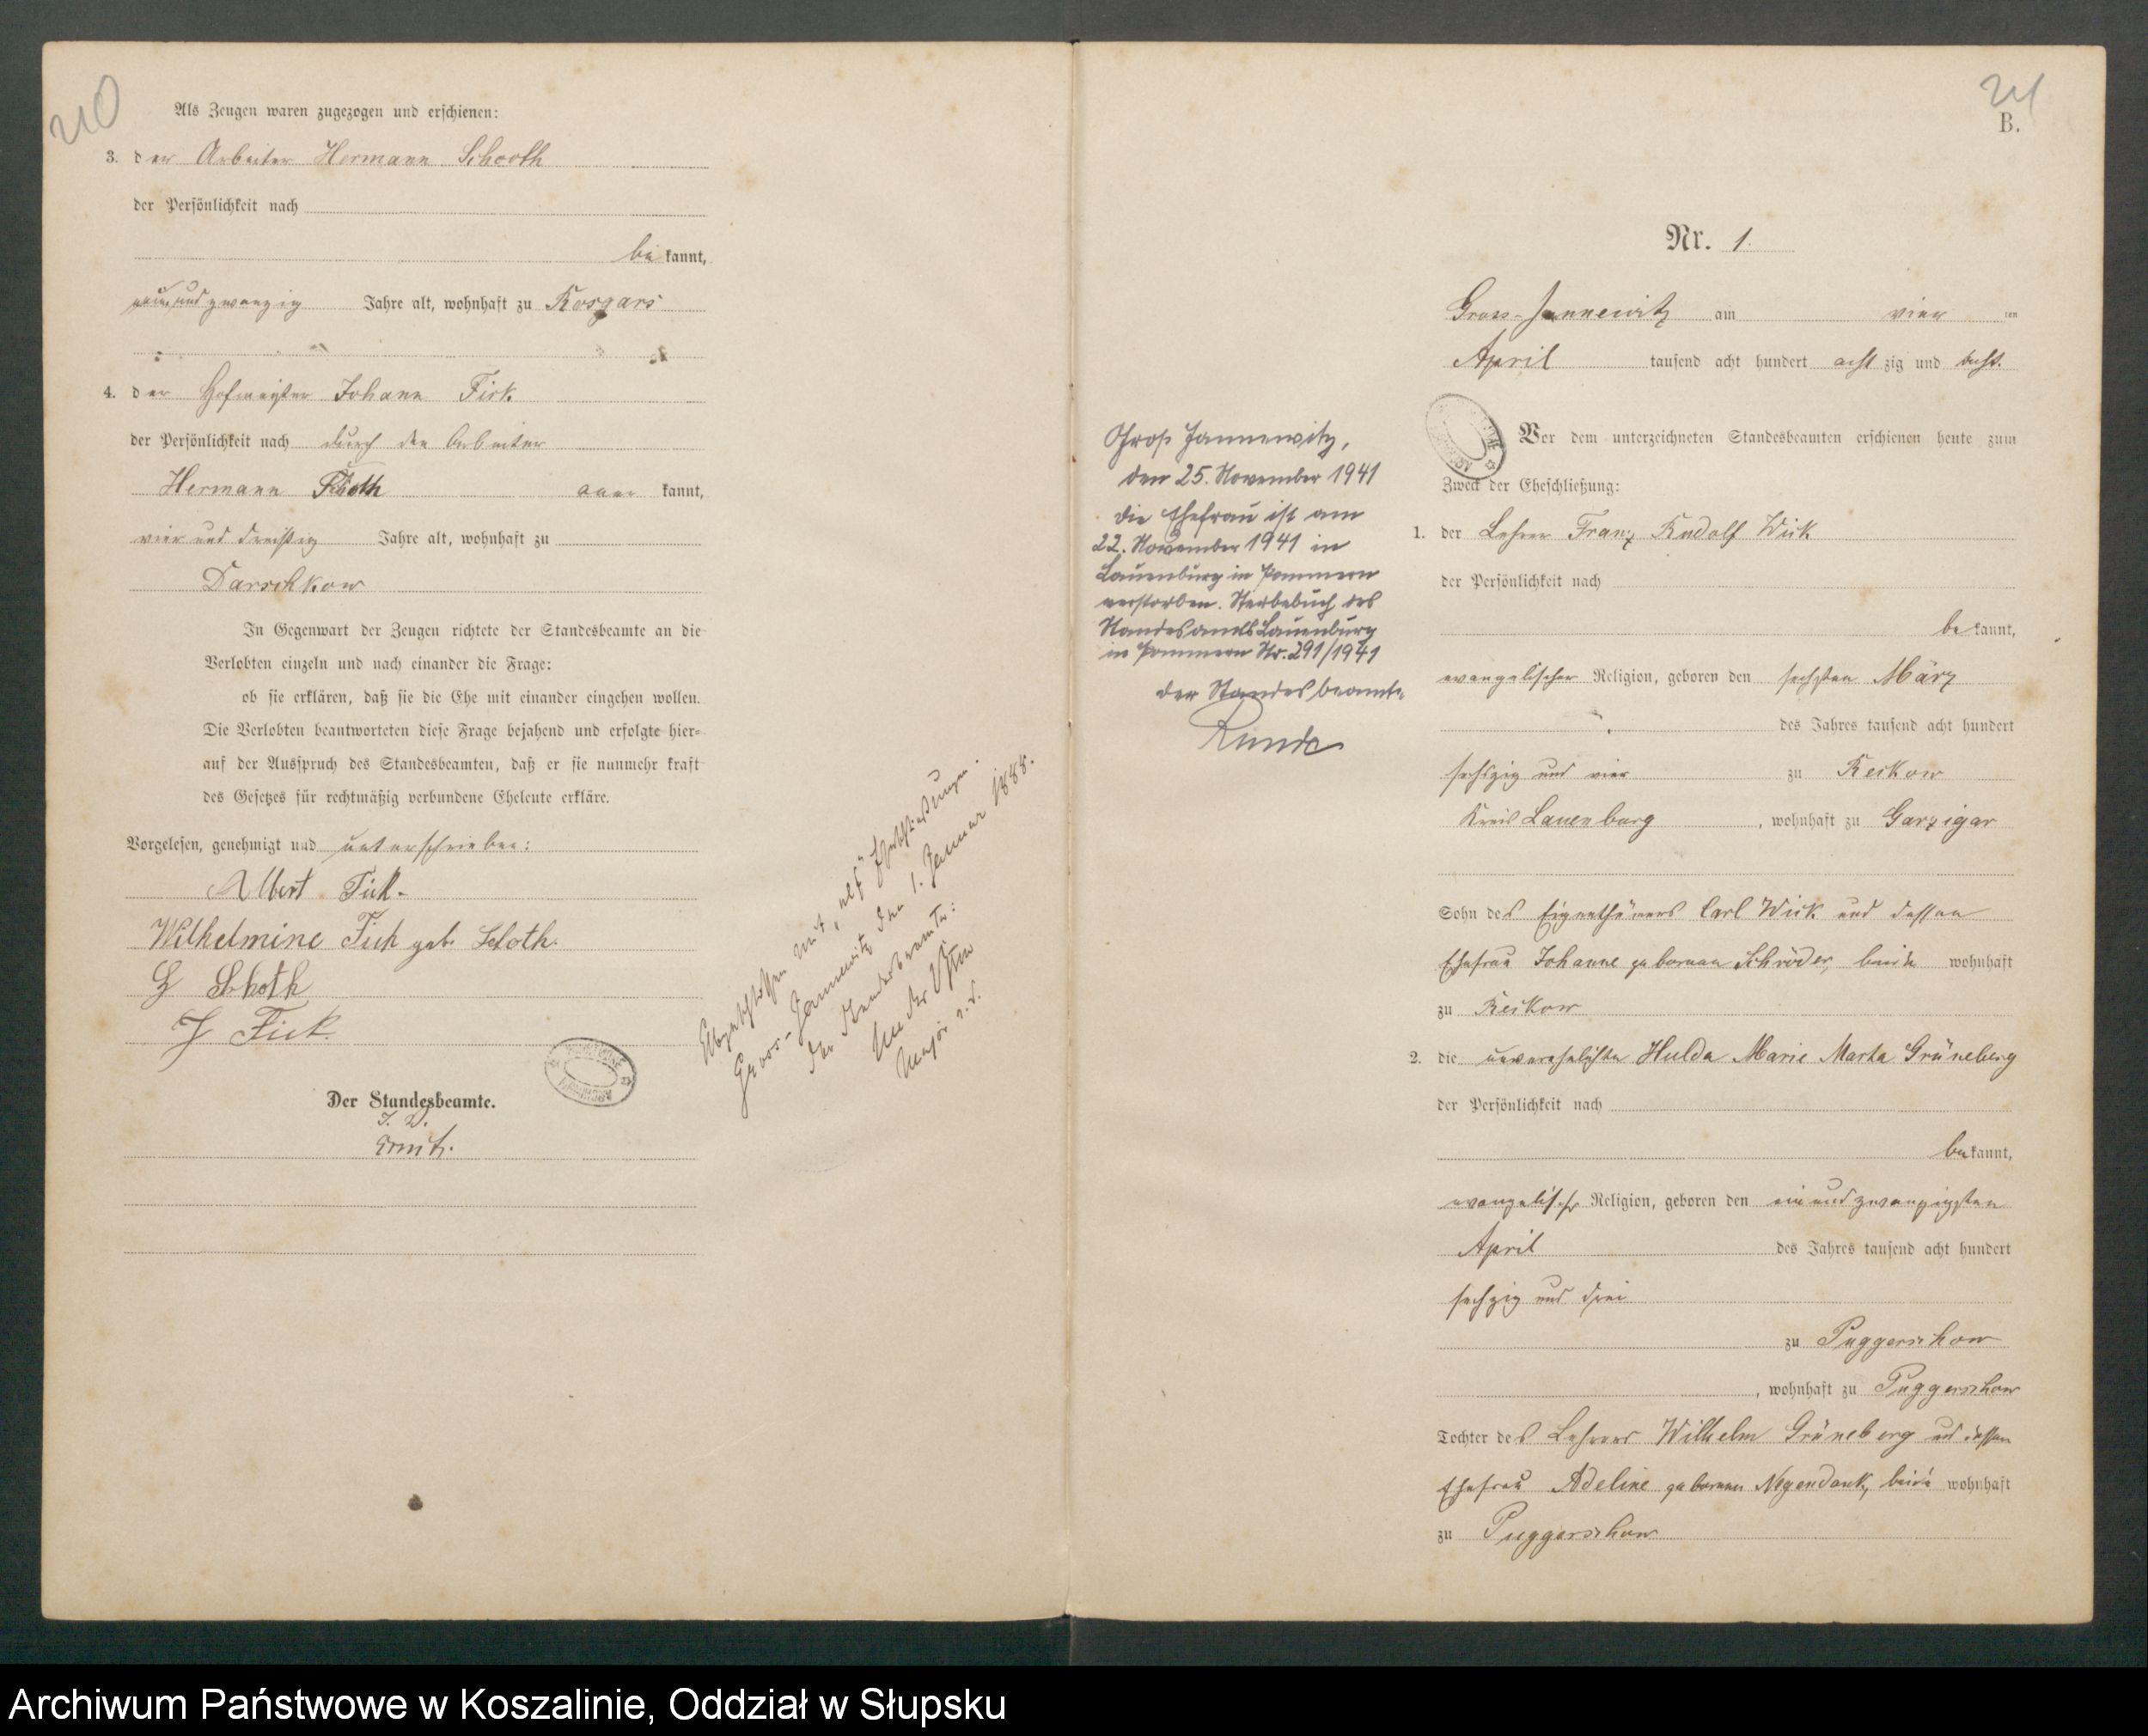 210
Als Zeugen waren zugezogen und erschienen:
3. der Arbeiter Hermann Schooth
der Persönlichkeit nach
be kannt,
neun und zwanzig Jahre alt, wohnhaft zu Rosgars
4. der Hofmeister Johann Fick
der Persönlichkeit nach durch den Arbeiter
Hermann Schoth aner kannt,
vier und dreißig Jahre alt, wohnhaft zu
Darschkow
In Gegenwart der Zeugen richtete der Standesbeamte an die
Verlobten einzeln und nach einander die Frage:
ob sie erklären, daß sie die Ehe mit einander eingehen wollen.
Die Verlobten beantworteten diese Frage bejahend und erfolgte hier-
auf der Ausspruch des Standesbeamten, daß er sie nunmehr kraft
des Gesetzes für rechtmäßig verbundene Eheleute erkläre.
Vorgelesen, genehmigt und unterschrieben:
Albert Fick.
Wilhelmine Fick geb. Schoth.
H Schoth
J Fick.
Der Standesbeamte.
I. V.
Abgeschlossen mit "elf" Eheschließungen.
Gross-Jannewitz den 1. Januar 1888.
Der Standesbeamte:
Major a. D.
Groß Jannewitz,
den 25. November 1941
Die Ehefrau ist am
22. November 1941 in
Lauenburg in Pommern
verstorben. Sterbebuch des
Standesamts Lauenburg
in Pommern Nr. 291/1941
Der Standesbeamte
Runde
21
B.
Nr. 1.
Gross-Jannewitz am vier ten
April tausend acht hundert acht zig und acht.
Vor dem unterzeichneten Standesbeamten erschienen heute zum
Zweck der Eheschließung:
1. der Lehrer Franz Rudolf Wick
der Persönlichkeit nach
be kannt,
evangelischer Religion, geboren den sechsten März
des Jahres tausend acht hundert
sechszig und vier zu Reskow
Kreis Lauenburg, wohnhaft zu Garzigar
Sohn des Eigenthümers Carl Wick und dessen
Ehefrau Johanne geborenen Schröder, beide wohnhaft
zu Reskow
2. die unverehelichte Hulda Marie Marta Grüneberg
der Persönlichkeit nach
be kannt,
evangelischer Religion, geboren den ein und zwanzigsten
April des Jahres tausend acht hundert
sechzig und drei
zu Puggerschow
, wohnhaft zu Puggerschow
Tochter des Lehrers Wilhelm Grüneberg und dessen
Ehefrau Adeline geborenen Negendank, beide wohnhaft
zu Puggerschow
Archiwum Państwowe w Koszalinie, Oddział w Słupsku